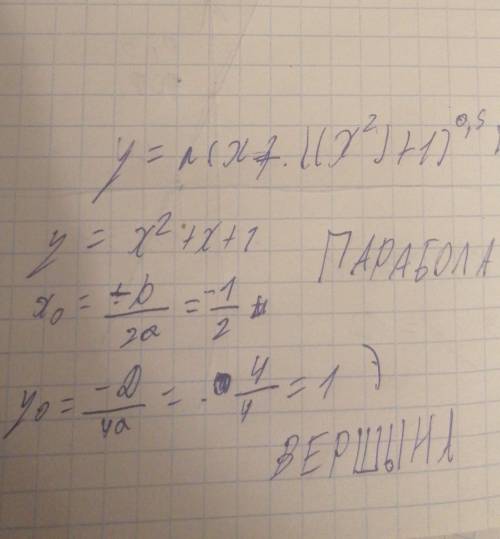 y = n(x+((x²)+1)^0,5)
y = x²+x+1 ПАРАБОЛА
x₀ = -b/2a = -1/2
y₀ = -D/4a = 4/4 = 1
ВЕРШЫНА